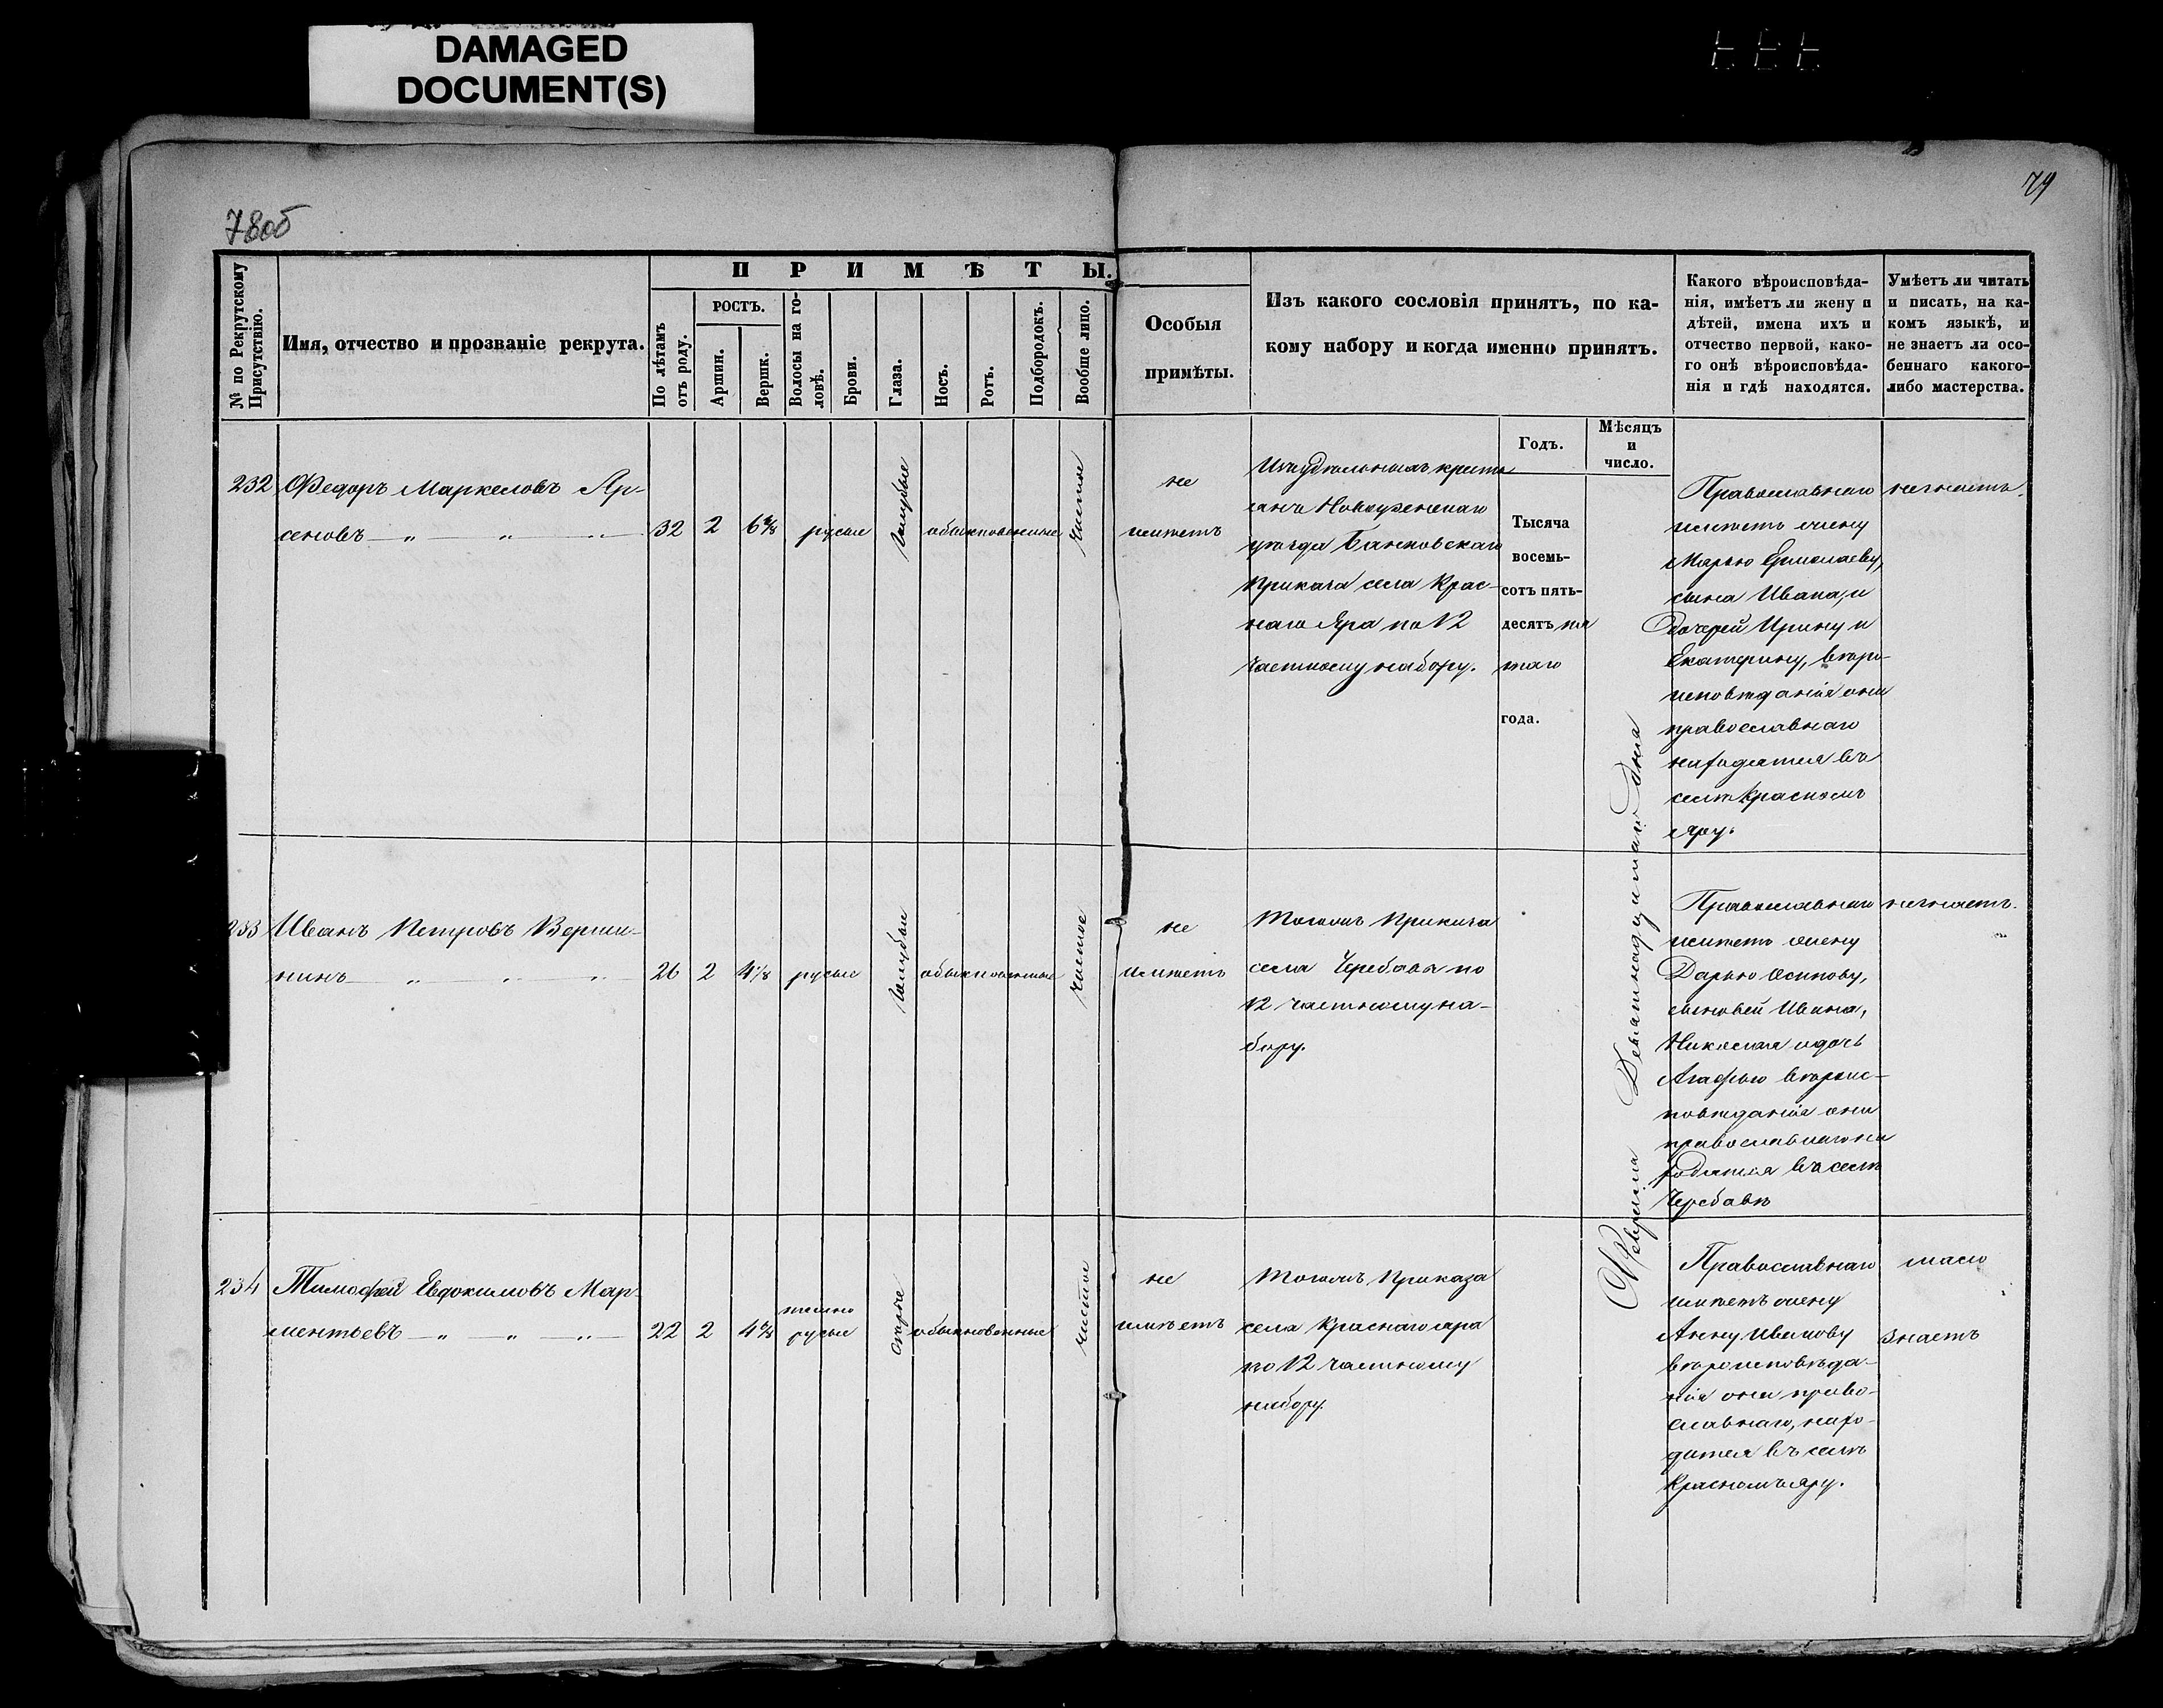 DAMAGED
DOCUMENT(S)
78об
79
№ по Рекрутскому
Присутствію.
Имя, отчество и прозваніе рекрута.
ПРИМѢТЫ.
По лѣтамъ
отъ роду.
РОСТЪ.
Аршин.
Вершк.
Волосы на го-
ловѣ.
Брови.
Глаза.
Носъ.
Ротъ.
Подбородокъ.
Вообще лицо.
Особыя
примѣты.
Изъ какого сословія принятъ, по ка-
кому набору и когда именно принятъ.
Годъ.
Мѣсяцъ
и
число.
Какого вѣроисповѣда-
нія, имѣетъ ли жену и
дѣтей, имена ихъ и
отчество первой, како-
го онѣ вѣроисповѣда-
нія и гдѣ находятся.
Умѣетъ ли читать
и писать, на ка-
комъ языкѣ, и
не знаетъ ли осо-
беннаго какого-
либо мастерства.
232
Федоръ Маркеловъ Ар-
сеновъ
32
2
6 4/8
русые
голубые
обыкновенные
чистое
не
имѣетъ
Изъ удѣльныхъ кресть
янъ Новоузенскаго
уѣзда
Приказа села Крас-
наго Яра по 12
частному набору.
Тысяча
восемь-
сотъ пять-
десятъ пя
таго
года.
Февраля Девятнадцатаго дня
Православнаго
имѣетъ жену
Марью Ермолаеву,
сына Ивана, и
дочерей Ирину и
Екатерину, вѣро-
исповѣданія они
православнаго
находятся въ
селѣ Красномъ
Яру.
незнаетъ.
233
Иванъ Петровъ Верши-
нинъ
26
2
4 1/8
русые
голубые
обыкновенные
чистое
не
имѣетъ
Тогожъ Приказа
села Черебаева по
12 частному на-
бору.
Православнаго
имѣетъ жену
Дарью Осипову,
сыновей Ивана,
Николая и дочь
Агафью вѣроис-
повѣданія они
православнаго на
ходятся въ селѣ
Черебаевѣ
незнаетъ.
234
Тимофей Евдокимовъ Мар
ментьевъ
22
2
4 4/8
темно
русые
сѣрые
обыкновенные
чистое
не
имѣетъ
Тогожъ Приказа
села Краснаго яра
по 12 частному
набору.
Православнаго
имѣетъ жену
Анну Иванову
вѣроисповѣда-
нія они право-
славнаго, нахо-
дится въ селѣ
Красномъ яру.
мало
знаетъ